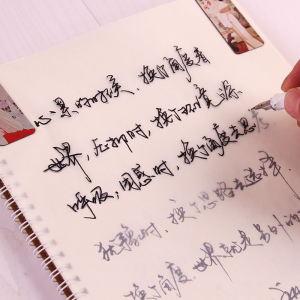 心累的时候，换个角度看
世界，压抑时，换个环境深
呼吸；困惑时，换个角度去思考
犹豫时，换个思路去选择
换个角度 世界就是另外的